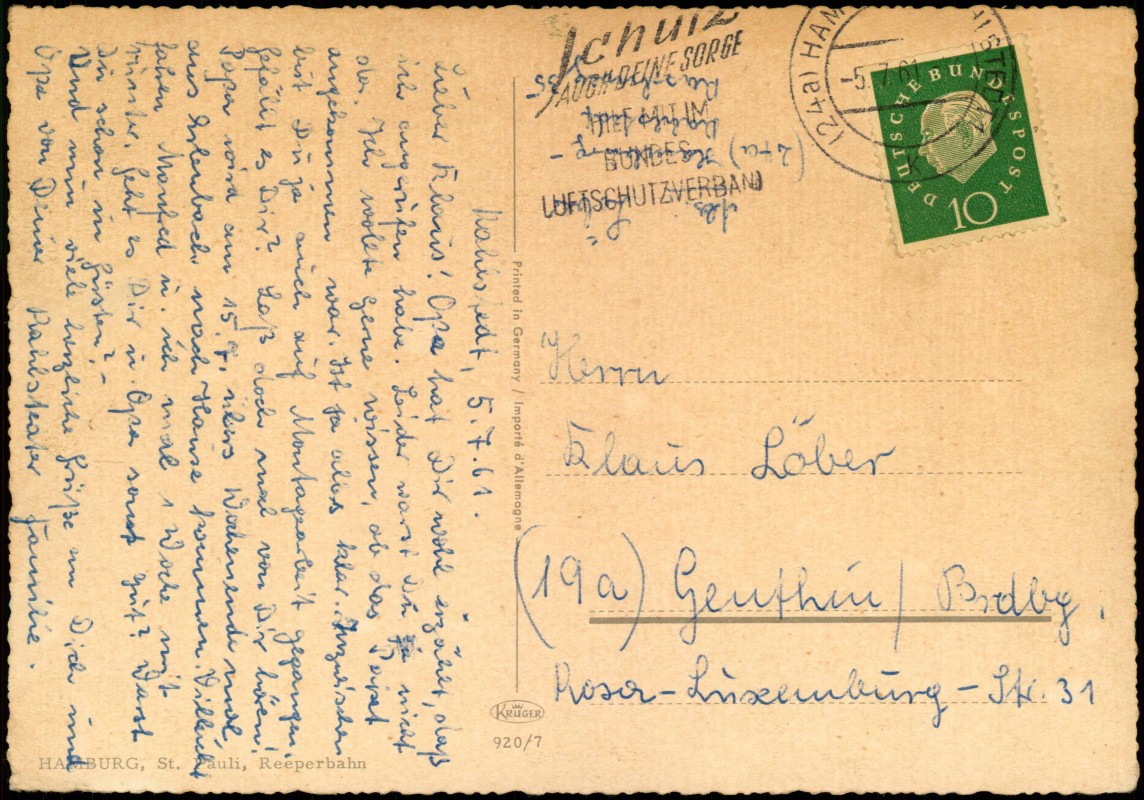 Rahlstedt, 5.7.61.
Lieber Klaus! Opa hat Dir wohl erzählt, daß
ich angerufen habe. Leider warst Du ja nicht
da. Ich wollte gerne wissen, ob das Paket
angekommen war. Ist ja alles klar. Inzwischen
bist Du ja auch auf Montagearbeit gegangen.
Gefällt es Dir? Laß doch mal von Dir hören!
Papa wird am 15.7. übers Wochenende mal
aus Erlenbach nach Hause kommen. Villeicht
fahren Manfred u. ich mal 1 Woche mit
runter. Geht es Dir u. Opa sonst gut? Warst
Du schon in Güsten? -
Und nun viele herzliche Grüße an Dich und
Opa von Deiner Rahlstedter Familie.
HAMBURG, St. Pauli, Reeperbahn
Printed in Germany / Importé d'Allemagne
KRÜGER
920/7
Schutz
AUCH DEINE SORGE
HILF MIT IM
BUNDES-
LUFTSCHUTZVERBAND
(24a) HAM
-5.7.61
K
DEUTSCHE BUNDESPOST
10
Abs.
(24a)
Herrn
Klaus Löber
(19a) Genthin / Brdbg.
Rosa-Luxemburg-Str. 31